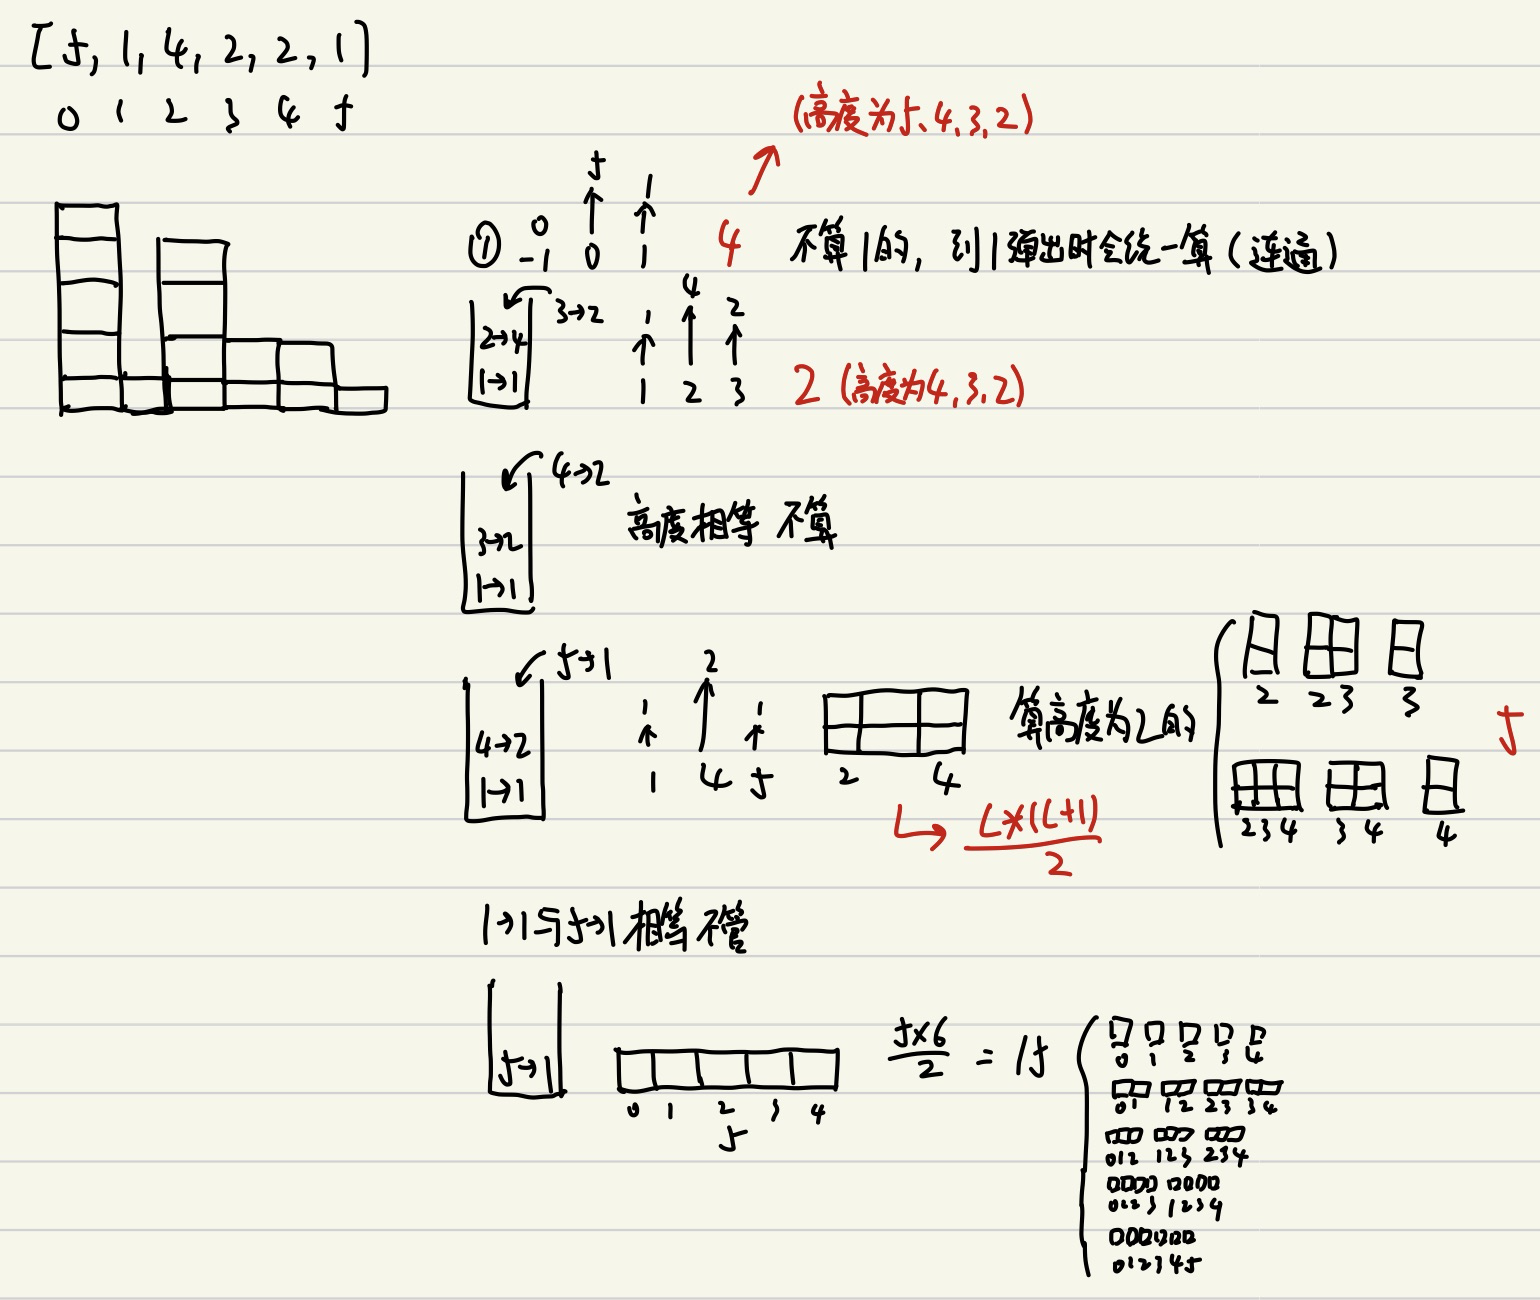 [5, 1, 4, 2, 2, 1]
0 1 2 3 4 5
(高度为5、4, 3, 2)
5 1
① 0 -1 0 1 4 不算1的, 到1弹出时会统一算 (连通)
3→2 1 4 2
2→4
1→1 1 2 3 2 (高度为4, 3, 2)
4→2
3→2 高度相等 不算
1→1
5→1 1 2 1
4→2
1→1 1 4 5 2 4 算高度为2的
2 23 3
5
234 34 4
L*(L+1)
2
1→1与5→1相等不管
5→1
0 1 2 3 4
5
5×6
2
= 15
0 1 2 3 4
01 12 23 34
012 123 234
0123 1234
012345